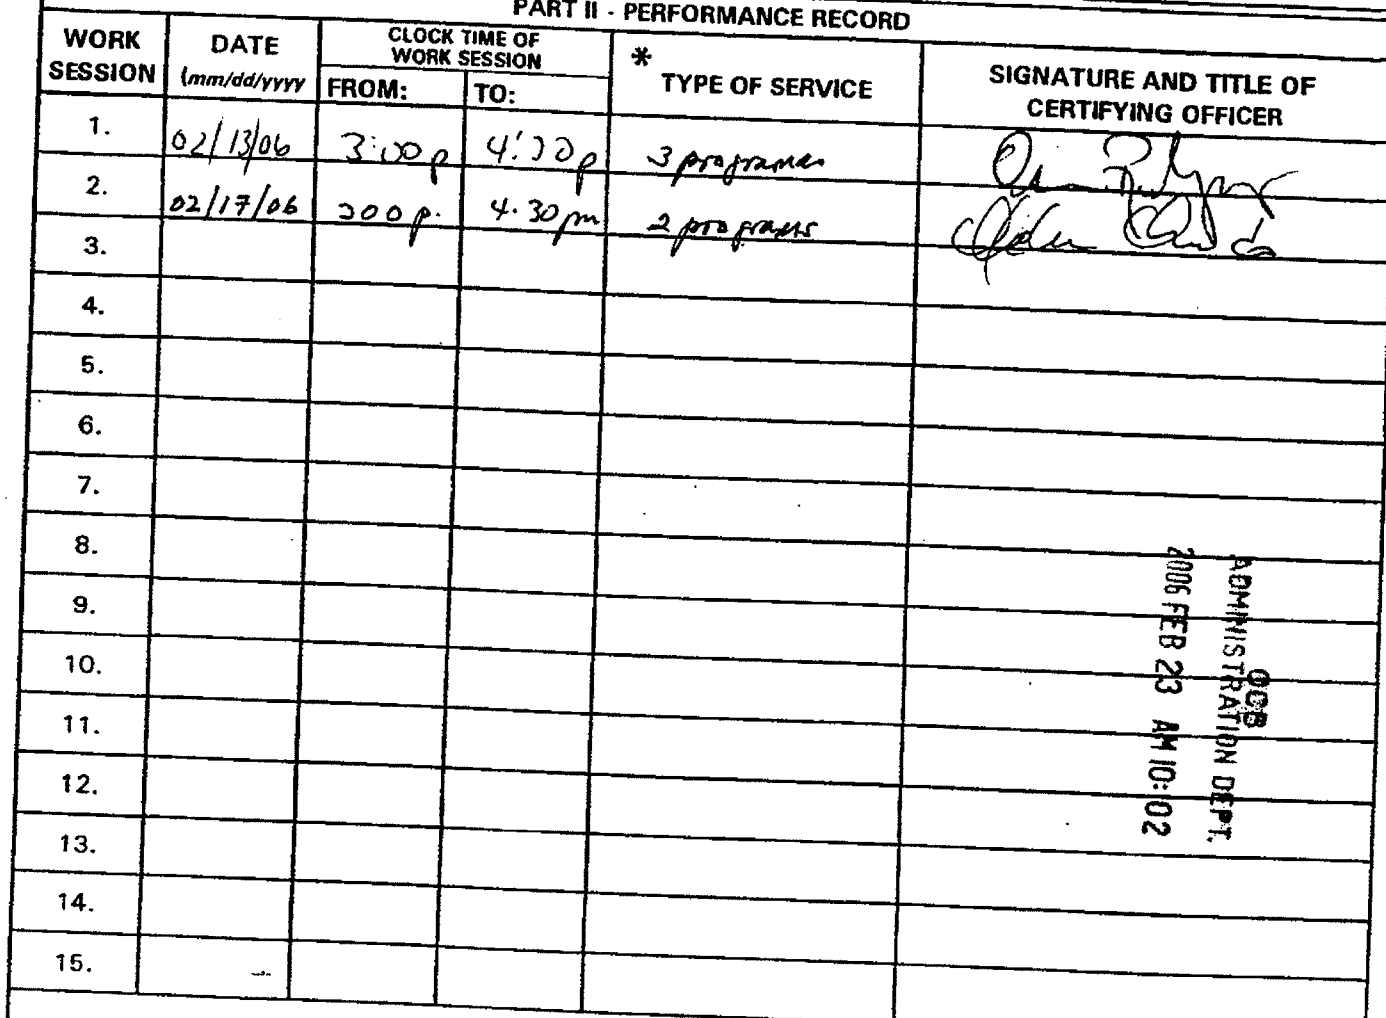 PART II - PERFORMANCE RECORD
WORK SESSION
DATE (mm/dd/yyyy
CLOCK TIME OF WORK SESSION
FROM:
TO:
* TYPE OF SERVICE
SIGNATURE AND TITLE OF CERTIFYING OFFICER
1. 02/13/06 3:00p 3 programs
2. 02/17/06 4.30pm 2 programs
3.
4.
5.
6.
7.
8.
9.
10.
11.
12.
13.
14.
15.
OCB
ADMINISTRATION DEPT.
2006 FEB 23 AM 10:02